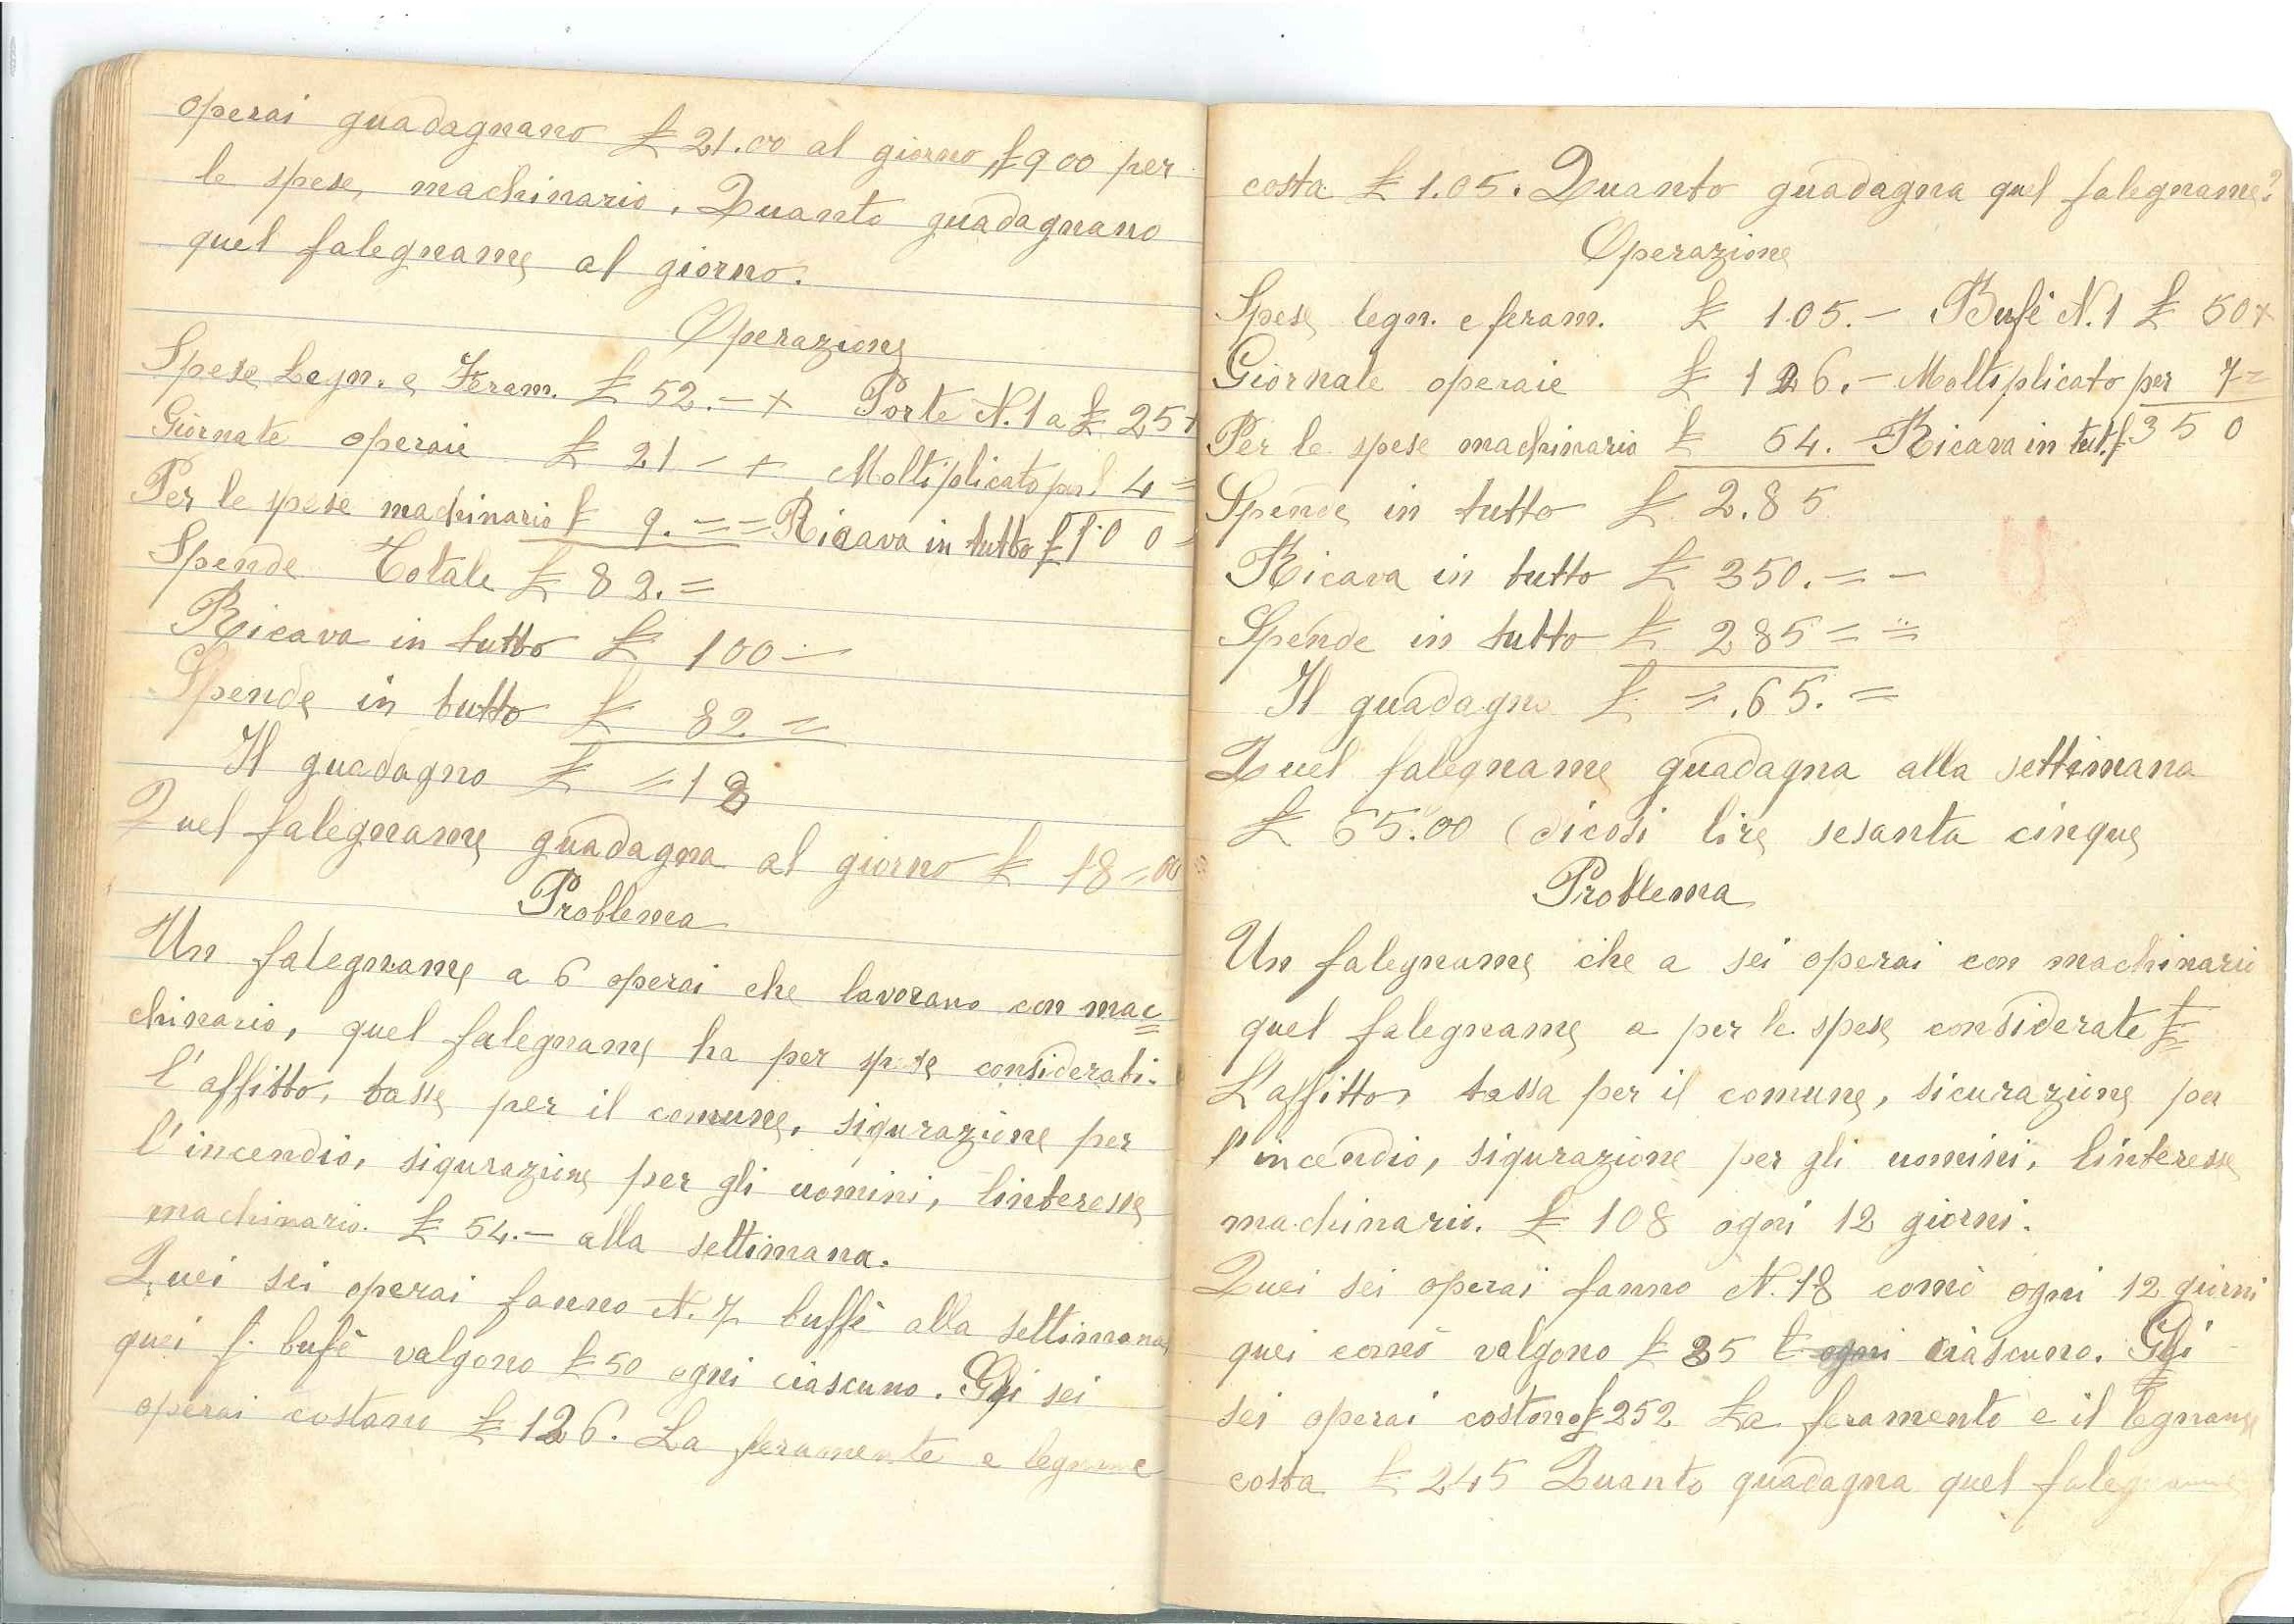 operai guadagnano £ 21.00 al giorno, £ 9 00 per
le spese, machinario. Quanto guadagnano
quel falegname al giorno.
Operazione
Spese Legn. e Feram. £ 52.– + Porte N.1 a £ 25 +
Giornate operaie £ 21 – + Moltiplicato per 4 =
Per le spese machinario £ 9. = = Ricava in tutto £ 100 =
Spende Totale £ 82. =
Ricava in tutto £ 100 –
Spende in tutto £ 82 =
Il guadagno £ = 18
Quel falegname guadagna al giorno £ 18=00
Problema
Un falegname a 6 operai che lavorano con mac=
chinario, quel falegname ha per spese considerati.
l'affitto, tasse per il comune, sigurazione per
l'incendio, sigurazione per gli uomini, linteresse
machinario. £ 54.– alla settimana.
Quei sei operai fanno N. 7 buffè alla settimana
quei f. bufè valgono £ 50 ogni ciascuno. Gli sei
operai costano £ 126. La feramente e legname
costa £ 1.05. Quanto guadagna quel falegname?
Operazione
Spese legn. e feram. £ 105.– Bufè N.1 £ 50 x
Giornale operaie £ 126.– Moltiplicato per 7 =
Per le spese machinario £ 54. – Ricava in tut. £ 350
Spende in tutto £ 2.85
Ricava in tutto £ 350. = –
Spende in tutto £ 285 = =
Il guadagno £ =.65. =
Quel falegname guadagna alla settimana
£ 65.00 (dicosi lire sesanta cinque
Problema
Un falegname che a sei operai con machinario
quel falegname a per le spese considerate £=
L'affitto, tassa per il comune, sicurazione per
l'incendio, sigurazione per gli uomini, linteresse
machinario. £ 108 ogni 12 giorni.
Quei sei operai fanno N. 18 comò ogni 12 giorni
quei comò valgono £ 35 £ ogni ciascuno. Gli
sei operai costono £ 252 La feramento e il legname
costa £ 245 Quanto guadagna quel falegname